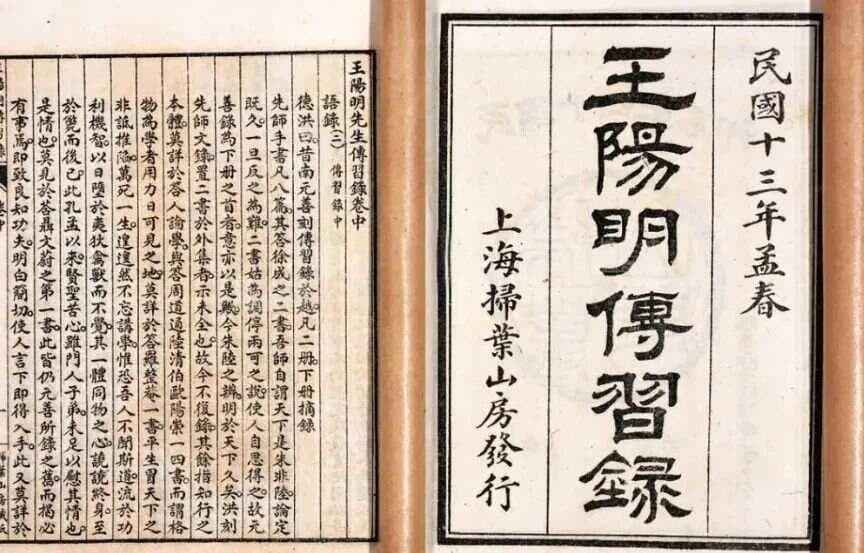 民國十三年孟春
王陽明傳習錄
上海掃葉山房發行
王陽明先生傳習錄卷中
語錄(二) 傳習錄中
德洪曰。昔南元善刻傳習錄於越。凡二冊。下冊摘錄
先師手書凡八篇。其答徐成之二書。吾師自謂天下是朱非陸。論定
既久。一旦反之為難。二書姑為調停兩可之說。使人自思得之。故元
善錄為下冊之首者。意亦以是歟。今朱陸之辨。明於天下久矣。洪刻
先師文錄。置二書於外集者。示未全也。故今不復錄。其餘指知行之
本體。莫詳於答人論學。與答周道通陸清伯歐陽崇一四書。而謂格
物為學者用力日可見之地。莫詳於答羅整菴一書。平生冒天下之
非詆推陷。萬死一生。遑遑然不忘講學。惟恐吾人不聞斯道。流於功
利機智。以日墮於夷狄禽獸而不覺。其一體同物之心。譊譊終身。至
於斃而後已。此孔孟以來賢聖苦心。雖門人子弟。未足以慰其情也。
是情也。莫見於答聶文蔚之第一書。此皆仍元善所錄之舊。而揭必
有事焉。即致良知功夫。明白簡切。使人言下即得入手。此又莫詳於